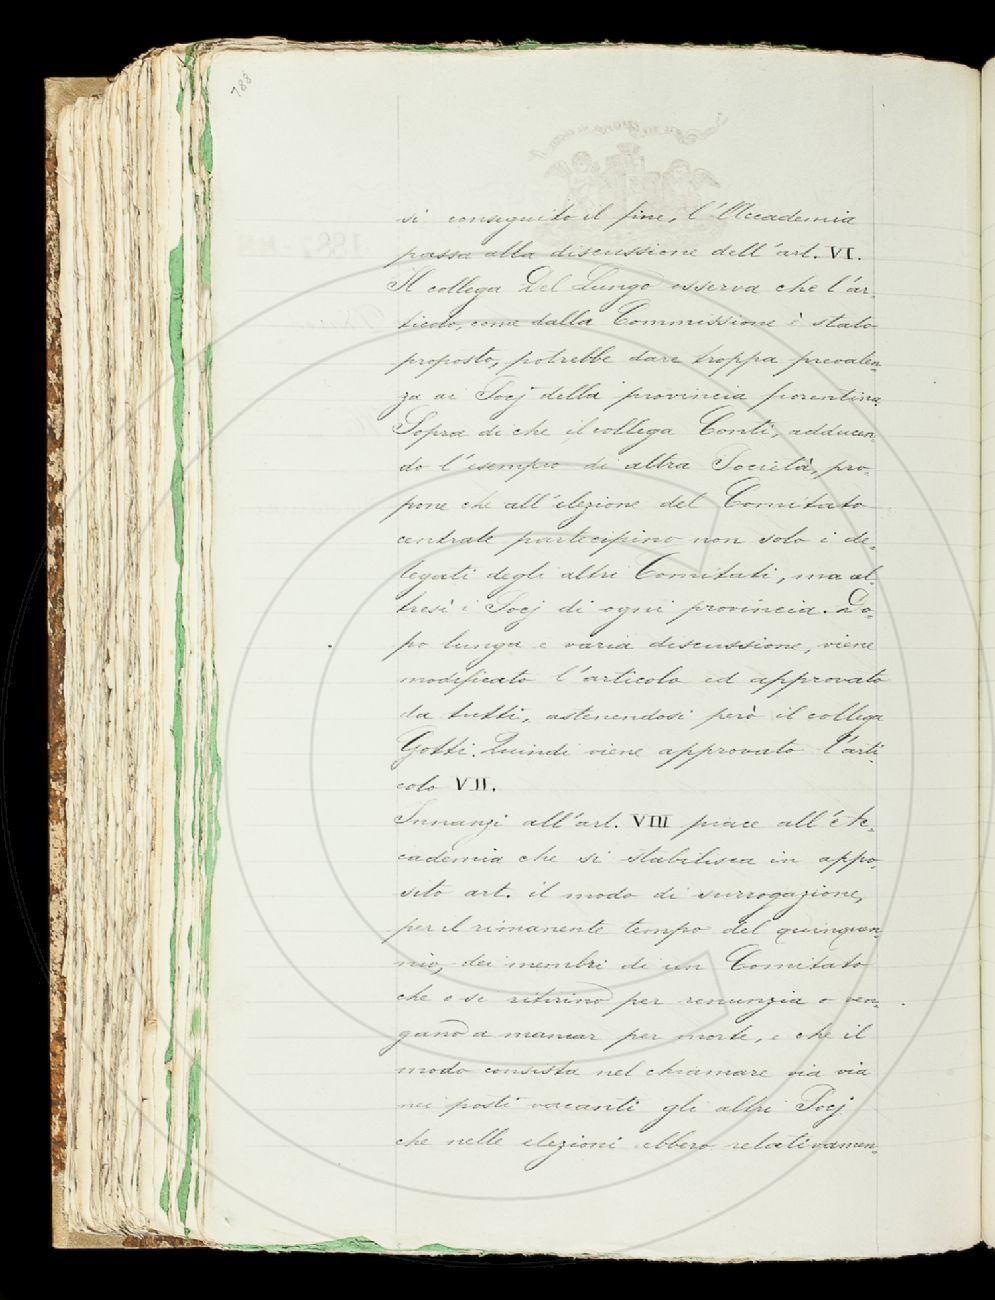 788
si conseguito il fine, l'Accademia
passa alla discussione dell'art. VI.
Il collega Del Lungo osserva che l'ar-
ticolo, come dalla Commissione è stato
proposto, potrebbe dare troppa prevalen-
za ai Socj della provincia fiorentina.
Sopra di che il collega Conti, adducen-
do l'esempio di altra Società, pro-
pone che all'elezione del Comitato
centrale partecipino non solo i de-
legati degli altri Comitati, ma al-
tresì i Socj di ogni provincia. Do-
po lunga e varia discussione, viene
modificato l'articolo ed approvato
da tutti, astenendosi però il collega
Gotti. Quindi viene approvato l'arti-
colo VII.
Innanzi all'art. VIII piace all'Ac-
cademia che si stabilisca in appo-
sito art. il modo di surrogazione,
per il rimanente tempo del quinquen-
nio, dei membri di un Comitato
che o si ritirino per renunzia o ven-
gano a mancar per morte, e che il
modo consista nel chiamare via via
nei posti vacanti gli altri Socj
che nelle elezioni ebbero relativamen-